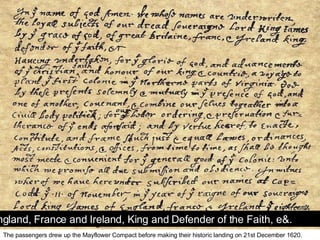 In yᵉ name of god Amen. We whose names are underwriten,
the loyall subjects of our dread soveraigne Lord King James
by yᵉ grace of god, of great Britaine, franc, & Ireland king,
defendor of yᵉ faith, &c
Haveing undertaken, for yᵉ glorie of god, and advancemente
of yᵉ christian faith and honour of our king & countrie, a voyage to
plant yᵉ first colonie in yᵉ Northerne parts of Virginia. Doe
by these presents solemnly & mutualy in yᵉ presence of god, and
one of another, covenant, & combine our selves togeather into a
Civill body politick; for our better ordering, & preservation & fur-
therance of yᵉ ends aforesaid; and by vertue hearof to enacte,
constitute, and frame such just & equall Lawes, ordinances,
Acts, constitutions, & offices, from time to time, as shall be thought
most meete & convenient for yᵉ generall good of yᵉ colonie: unto
which we promise all due submission and obedience. In witnes
wherof we have hereunder subscribed our names at Cap-
Codd yᵉ .11. of November in yᵉ year of yᵉ raigne of our soveraigne
Lord king James of England, france, & Ireland yᵉ eighteenth
ngland, France and Ireland, King and Defender of the Faith, e&.
The passengers drew up the Mayflower Compact before making their historic landing on 21st December 1620.